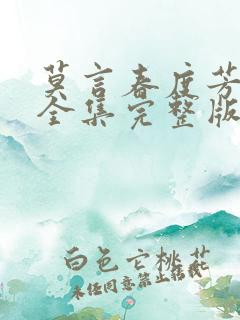 莫言春度芳
全集完整版
白色亡桃花
未经同意禁止转载